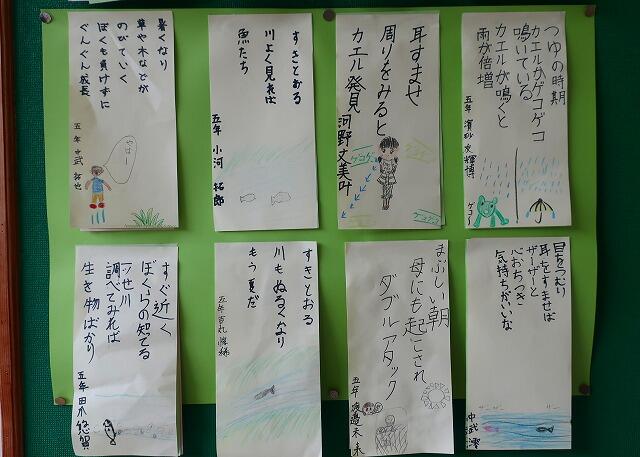 つゆの時期
カエルがゲコゲコ
鳴いている
カエルが鳴くと
雨が倍増
五年
ゲコ〜
耳すませ
周りをみると
カエル発見
河野文美叶
ゲコゲコ
ゲコゲコ
すきとおる
川よく見れば
魚たち
五年 小河 拓郎
暑くなり
草や木などが
のびていく
ぼくも負けずに
ぐんぐん成長
五年 中武 拓也
やはー
目をつむり
耳をすませば
ザーザーと
心おちつき
気持ちがいいな
中武 澪
ザー
まぶしい朝
母にも起こされ
ダブルアタック
五年 渡邉 未来
すきとおる
川もぬるくなり
もう夏だ
五年
すぐ近く
ぼくらの知てる
一ツ瀬川
調べてみれば
生き物ばかり
五年 田爪 悠賀